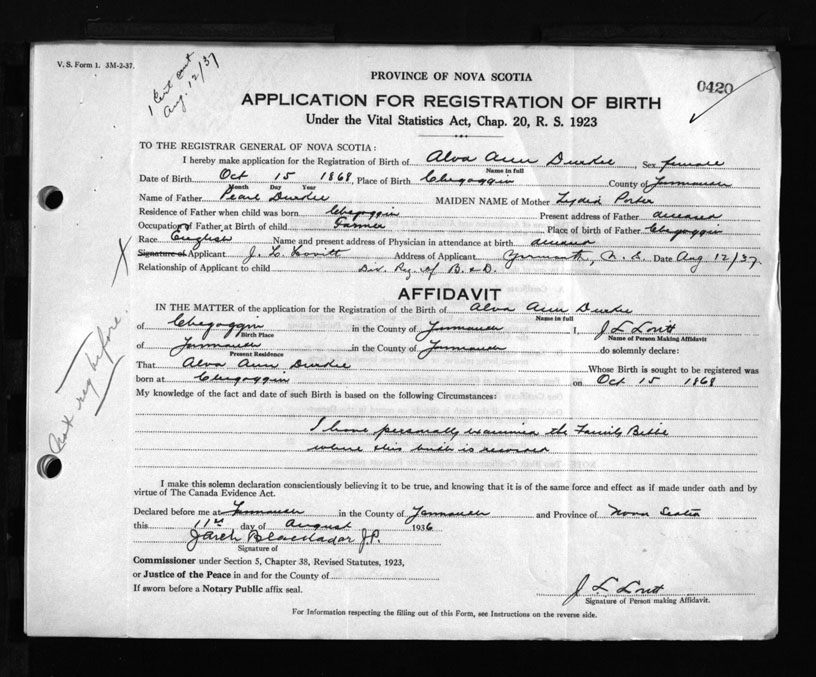 V. S. Form 1. 3M-2-37.
1 Cert out
Aug. 12/37
0420
PROVINCE OF NOVA SCOTIA
APPLICATION FOR REGISTRATION OF BIRTH
Under the Vital Statistics Act, Chap. 20, R. S. 1923
TO THE REGISTRAR GENERAL OF NOVA SCOTIA:
I hereby make application for the Registration of Birth of Alva Ann Durkee, Sex female
Name in full
Date of Birth Oct 15 1868, Place of Birth Chegoggin County of Yarmouth
Month Day Year
Name of Father Pearl Durkee MAIDEN NAME of Mother Lydia Porter
Residence of Father when child was born Chegoggin Present address of Father deceased
Occupation of Father at Birth of child Farmer Place of birth of Father Chegoggin
Race English Name and present address of Physician in attendance at birth deceased
Signature of Applicant J. L. Lovitt Address of Applicant Yarmouth, N. S. Date Aug 12/37.
Relationship of Applicant to child Div. Reg. of B. & D.
AFFIDAVIT
IN THE MATTER of the application for the Registration of the Birth of Alva Ann Durkee
Name in full
of Chegoggin in the County of Yarmouth I, J L Lovitt
Birth Place Name of Person Making Affidavit
of Yarmouth in the County of Yarmouth do solemnly declare:
Present Residence
That Alva Ann Durkee Whose Birth is sought to be registered was
born at Chegoggin on Oct 15 1868
My knowledge of the fact and date of such Birth is based on the following Circumstances:
I have personally examined the Family Bible
where this birth is recorded
not reg before.
I make this solemn declaration conscientiously believing it to be true, and knowing that it is of the same force and effect as if made under oath and by
virtue of The Canada Evidence Act.
Declared before me at Yarmouth in the County of Yarmouth and Province of Nova Scotia
this 11th day of August 1936
J.P.
Signature of
Commissioner under Section 5, Chapter 38, Revised Statutes, 1923,
or Justice of the Peace in and for the County of
If sworn before a Notary Public affix seal.
J. L. Lovitt
Signature of Person making Affidavit.
For Information respecting the filling out of this Form, see Instructions on the reverse side.